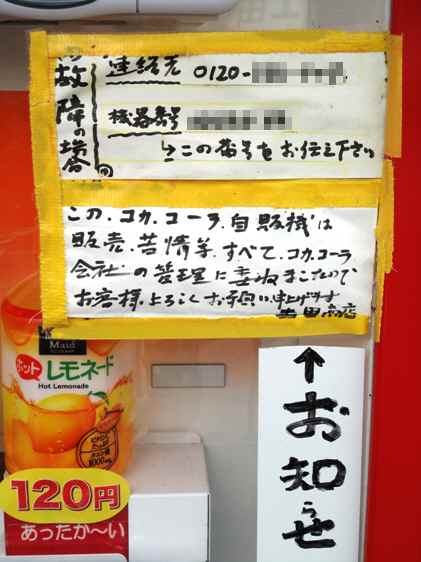 故障の場合
連絡先 0120-
機器番号
↳この番号をお伝え下さい
この.コカ.コーラ.自販機は
販売.苦情等.すべて.コカ.コーラ
会社の管理に委ねましたので
お客様よろしくお願い申上げます
田商店
↑お知らせ
Maid
ホット
レモネード
Hot Lemonade
1000mg
120円
あったか〜い